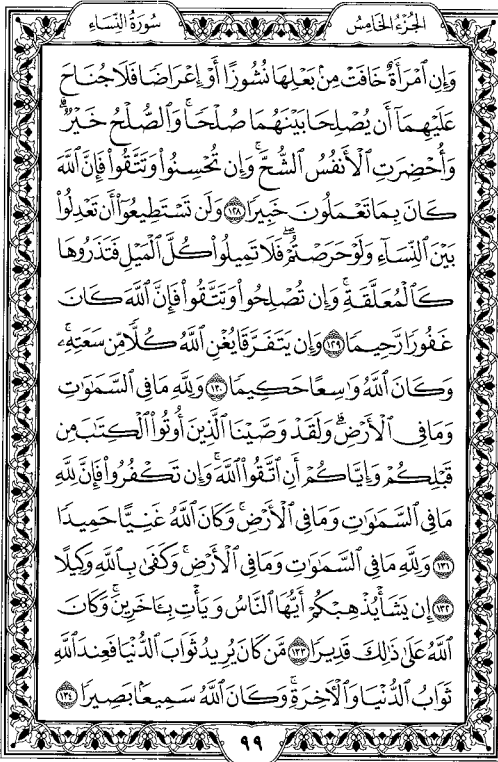 الجزء الخامس سورة النساء
وَإِنِ ٱمْرَأَةٌ خَافَتْ مِنۢ بَعْلِهَا نُشُوزًا أَوْ إِعْرَاضًا فَلَا جُنَاحَ
عَلَيْهِمَآ أَن يُصْلِحَا بَيْنَهُمَا صُلْحًا ۚ وَٱلصُّلْحُ خَيْرٌ ۗ
وَأُحْضِرَتِ ٱلْأَنفُسُ ٱلشُّحَّ ۚ وَإِن تُحْسِنُوا۟ وَتَتَّقُوا۟ فَإِنَّ ٱللَّهَ
كَانَ بِمَا تَعْمَلُونَ خَبِيرًا ١٢٨ وَلَن تَسْتَطِيعُوٓا۟ أَن تَعْدِلُوا۟
بَيْنَ ٱلنِّسَآءِ وَلَوْ حَرَصْتُمْ ۖ فَلَا تَمِيلُوا۟ كُلَّ ٱلْمَيْلِ فَتَذَرُوهَا
كَٱلْمُعَلَّقَةِ ۚ وَإِن تُصْلِحُوا۟ وَتَتَّقُوا۟ فَإِنَّ ٱللَّهَ كَانَ
غَفُورًا رَّحِيمًا ١٢٩ وَإِن يَتَفَرَّقَا يُغْنِ ٱللَّهُ كُلًّا مِّن سَعَتِهِۦ ۚ
وَكَانَ ٱللَّهُ وَٰسِعًا حَكِيمًا ١٣٠ وَلِلَّهِ مَا فِى ٱلسَّمَٰوَٰتِ
وَمَا فِى ٱلْأَرْضِ ۗ وَلَقَدْ وَصَّيْنَا ٱلَّذِينَ أُوتُوا۟ ٱلْكِتَٰبَ مِن
قَبْلِكُمْ وَإِيَّاكُمْ أَنِ ٱتَّقُوا۟ ٱللَّهَ ۚ وَإِن تَكْفُرُوا۟ فَإِنَّ لِلَّهِ
مَا فِى ٱلسَّمَٰوَٰتِ وَمَا فِى ٱلْأَرْضِ ۚ وَكَانَ ٱللَّهُ غَنِيًّا حَمِيدًا
١٣١ وَلِلَّهِ مَا فِى ٱلسَّمَٰوَٰتِ وَمَا فِى ٱلْأَرْضِ ۚ وَكَفَىٰ بِٱللَّهِ وَكِيلًا
١٣٢ إِن يَشَأْ يُذْهِبْكُمْ أَيُّهَا ٱلنَّاسُ وَيَأْتِ بِـَٔاخَرِينَ ۚ وَكَانَ
ٱللَّهُ عَلَىٰ ذَٰلِكَ قَدِيرًا ١٣٣ مَّن كَانَ يُرِيدُ ثَوَابَ ٱلدُّنْيَا فَعِندَ ٱللَّهِ
ثَوَابُ ٱلدُّنْيَا وَٱلْـَٔاخِرَةِ ۚ وَكَانَ ٱللَّهُ سَمِيعًۢا بَصِيرًا ١٣٤
٩٩